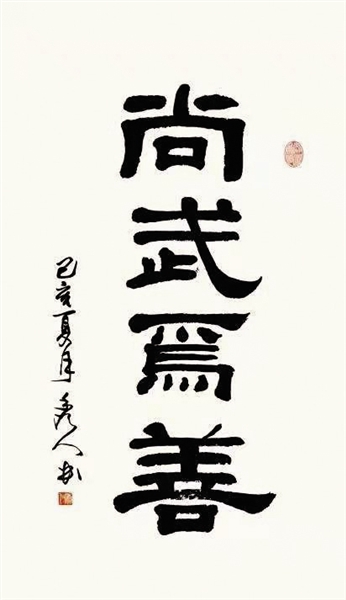 尚武為善
己亥夏月